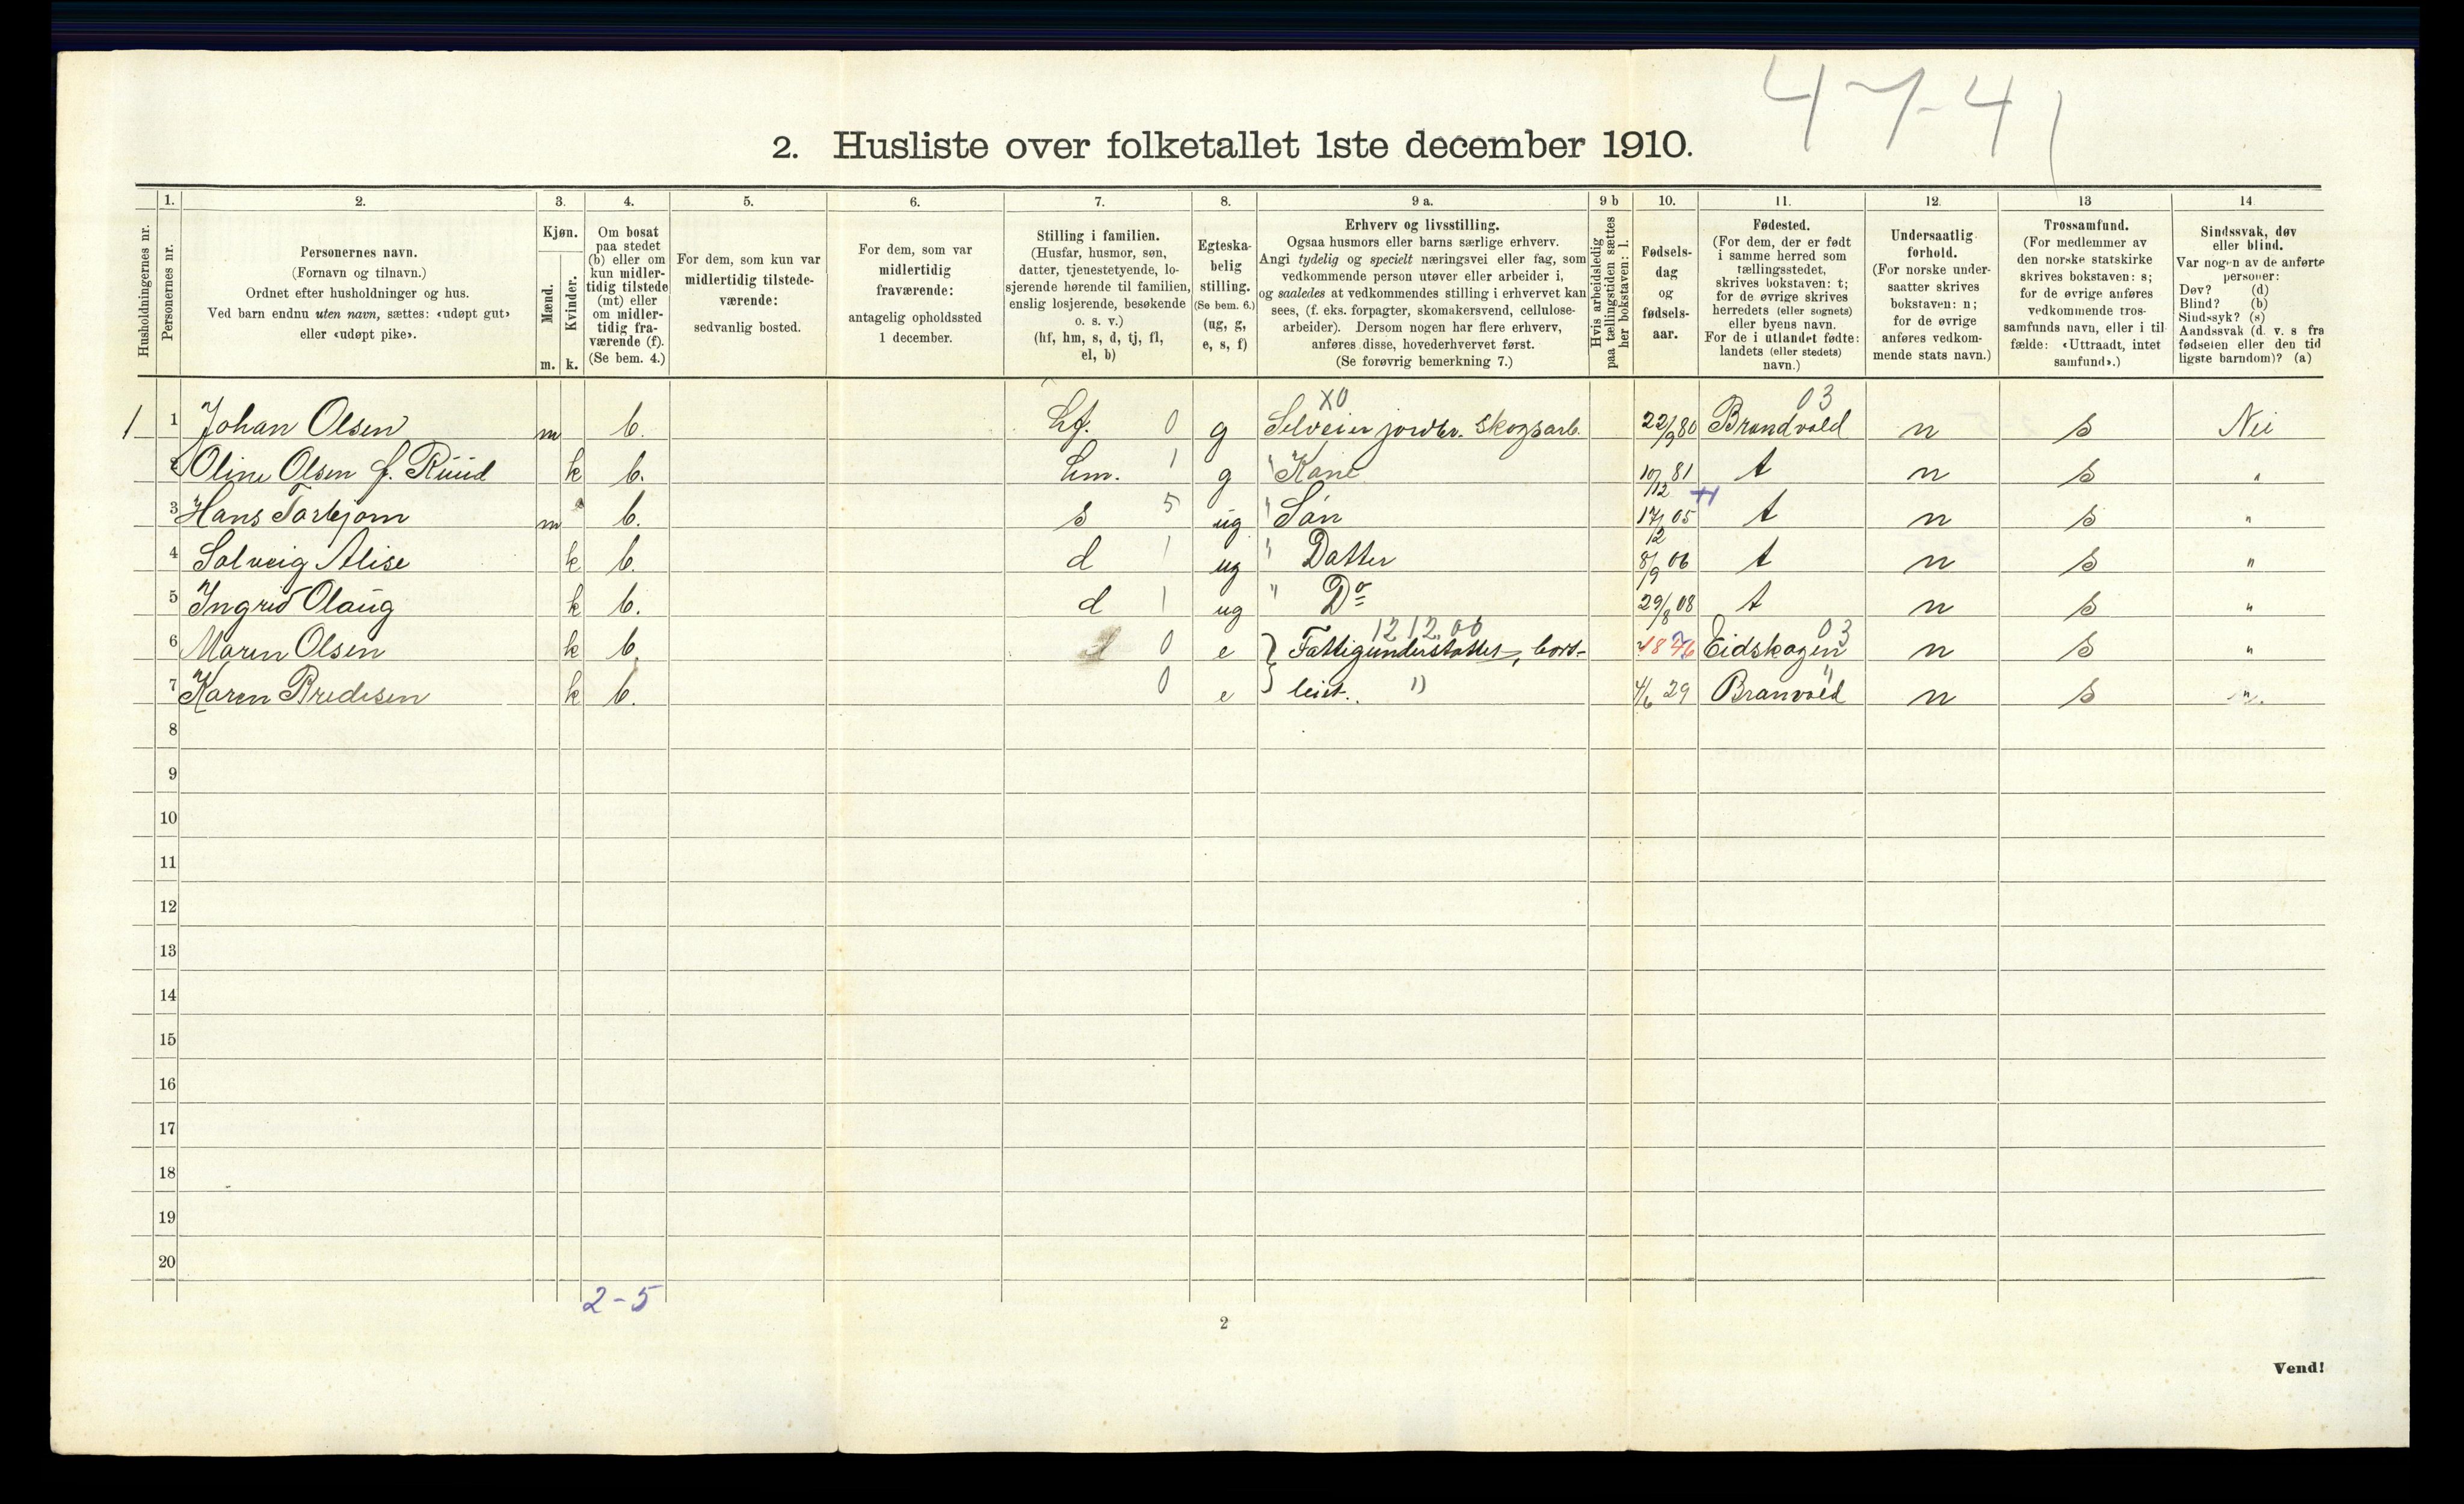 4-7-41
2. Husliste over folketallet 1ste december 1910.
Husholdningernes nr.
1.
Personernes nr.
2.
Personernes navn.
(Fornavn og tilnavn.)
Ordnet efter husholdninger og hus.
Ved barn endnu uten navn, sættes: «udøpt gut»
eller «udøpt pike».
3.
Kjøn.
Mænd.
Kvinder.
m. k.
4.
Om bosat
paa stedet
(b) eller om
kun midler-
tidig tilstede
(mt) eller
om midler-
tidig fra-
værende (f).
(Se bem. 4.)
5.
For dem, som kun var
midlertidig tilstede-
værende:
sedvanlig bosted.
6.
For dem, som var
midlertidig
fraværende:
antagelig opholdssted
1 december.
7.
Stilling i familien.
(Husfar, husmor, søn,
datter, tjenestetyende, lo-
sjerende hørende til familien,
enslig losjerende, besøkende
o. s. v.)
(hf, hm, s, d, tj, fl,
el, b)
8.
Egteska-
belig
stilling.
(Se bem. 6.)
(ug, g,
e, s, f)
9 a.
Erhverv og livsstilling.
Ogsaa husmors eller barns særlige erhverv.
Angi tydelig og specielt næringsvei eller fag, som
vedkommende person utøver eller arbeider i,
og saaledes at vedkommendes stilling i erhvervet kan
sees, (f. eks. forpagter, skomakersvend, cellulose-
arbeider). Dersom nogen har flere erhverv,
anføres disse, hovederhvervet først.
(Se forøvrig bemerkning 7.)
9 b
Hvis arbeidsledig
paa tællingstiden sættes
her bokstaven: l.
10.
Fødsels-
dag
og
fødsels-
aar.
11.
Fødested.
(For dem, der er født
i samme herred som
tællingsstedet,
skrives bokstaven: t;
for de øvrige skrives
herredets (eller sognets)
eller byens navn.
For de i utlandet fødte:
landets (eller stedets)
navn.)
12.
Undersaatlig
forhold.
(For norske under-
saatter skrives
bokstaven: n;
for de øvrige
anføres vedkom-
mende stats navn.)
13
Trossamfund.
(For medlemmer av
den norske statskirke
skrives bokstaven: s;
for de øvrige anføres
vedkommende tros-
samfunds navn, eller i til
fælde: «Uttraadt, intet
samfund».)
14
Sindssvak, døv
eller blind.
Var nogen av de anførte
personer:
Døv? (d)
Blind? (b)
Sindssyk? (s)
Aandssvak (d. v. s fra
fødselen eller den tid
ligste barndom)? (a)
X0 03
1 1 Johan Olsen m b. hf. 0 g Selveier jordbr. skogsarb. 22/9 80 Brandvold n s Nei
2 Oline Olsen f. Ruud k b. hm. 1 g " Kone 10/12 81 t n s "
3 Hans Torbjørn m b. s 5 ug " Søn 17/12 05 t n s "
4 Solveig Alise k b. d 1 ug " Datter 8/9 06 t n s "
5 Ingrid Olaug k b. d 1 ug " Do 29/8 08 t n s "
12 12.00 03
6 Maren Olsen k b. 0 e } Fattigunderstøttet, bort- Eidskogen n s "
7 Karen Bredesen k b. 0 e leiet. 1) 4/6 29 Branvold n s "
8
9
10
11
12
13
14
15
16
17
18
19
20
2-5
2
Vend!